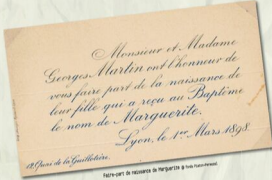 Monsieur et Madame
Georges Martin ont l'honneur de
vous faire part de la naissance de
leur fille qui a reçu au Baptême
le nom de Marguerite.
Lyon, le 1er Mars 1898.
12 Quai de la Guillotière.
Faire-part de naissance de Marguerite @